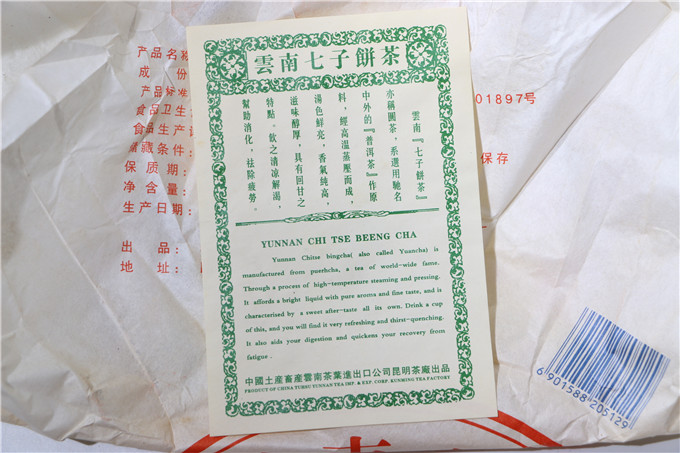 雲南七子餅茶
雲南『七子餅茶』
亦稱圓茶，系選用馳名
中外的『普洱茶』作原
料，經高溫蒸壓而成，
湯色鮮亮，香氣纯高，
滋味醇厚，具有回甘之
特點。飲之清凉解渴，
幫助消化，祛除疲勞。
YUNNAN CHI TSE BEENG CHA
Yunnan Chitse bingcha( also called Yuancha) is
manufactured from puerhcha, a tea of world-wide fame.
Through a process of high-temperature steaming and pressing.
It affords a bright liquid with pure aroma and fine taste, and is
characterised by a sweet after-taste all its own. Drink a cup
of this, and you will find it very refreshing and thirst-quenching.
It also aids your digestion and quickens your recovery from
fatigue .
中國土産畜産雲南茶葉進出口公司昆明茶廠出品
PRODUCT OF CHINA TUHSU YUNNAN TEA IMP. & EXP. CORP. KUNMING TEA FACTORY
产品名称
成 份
产品标准
食品卫生
食品生产
藏条件:
保 质 期:
净 含 量:
生产日期:
出 品:
地 址:
01897号
保存
6 901588 205129